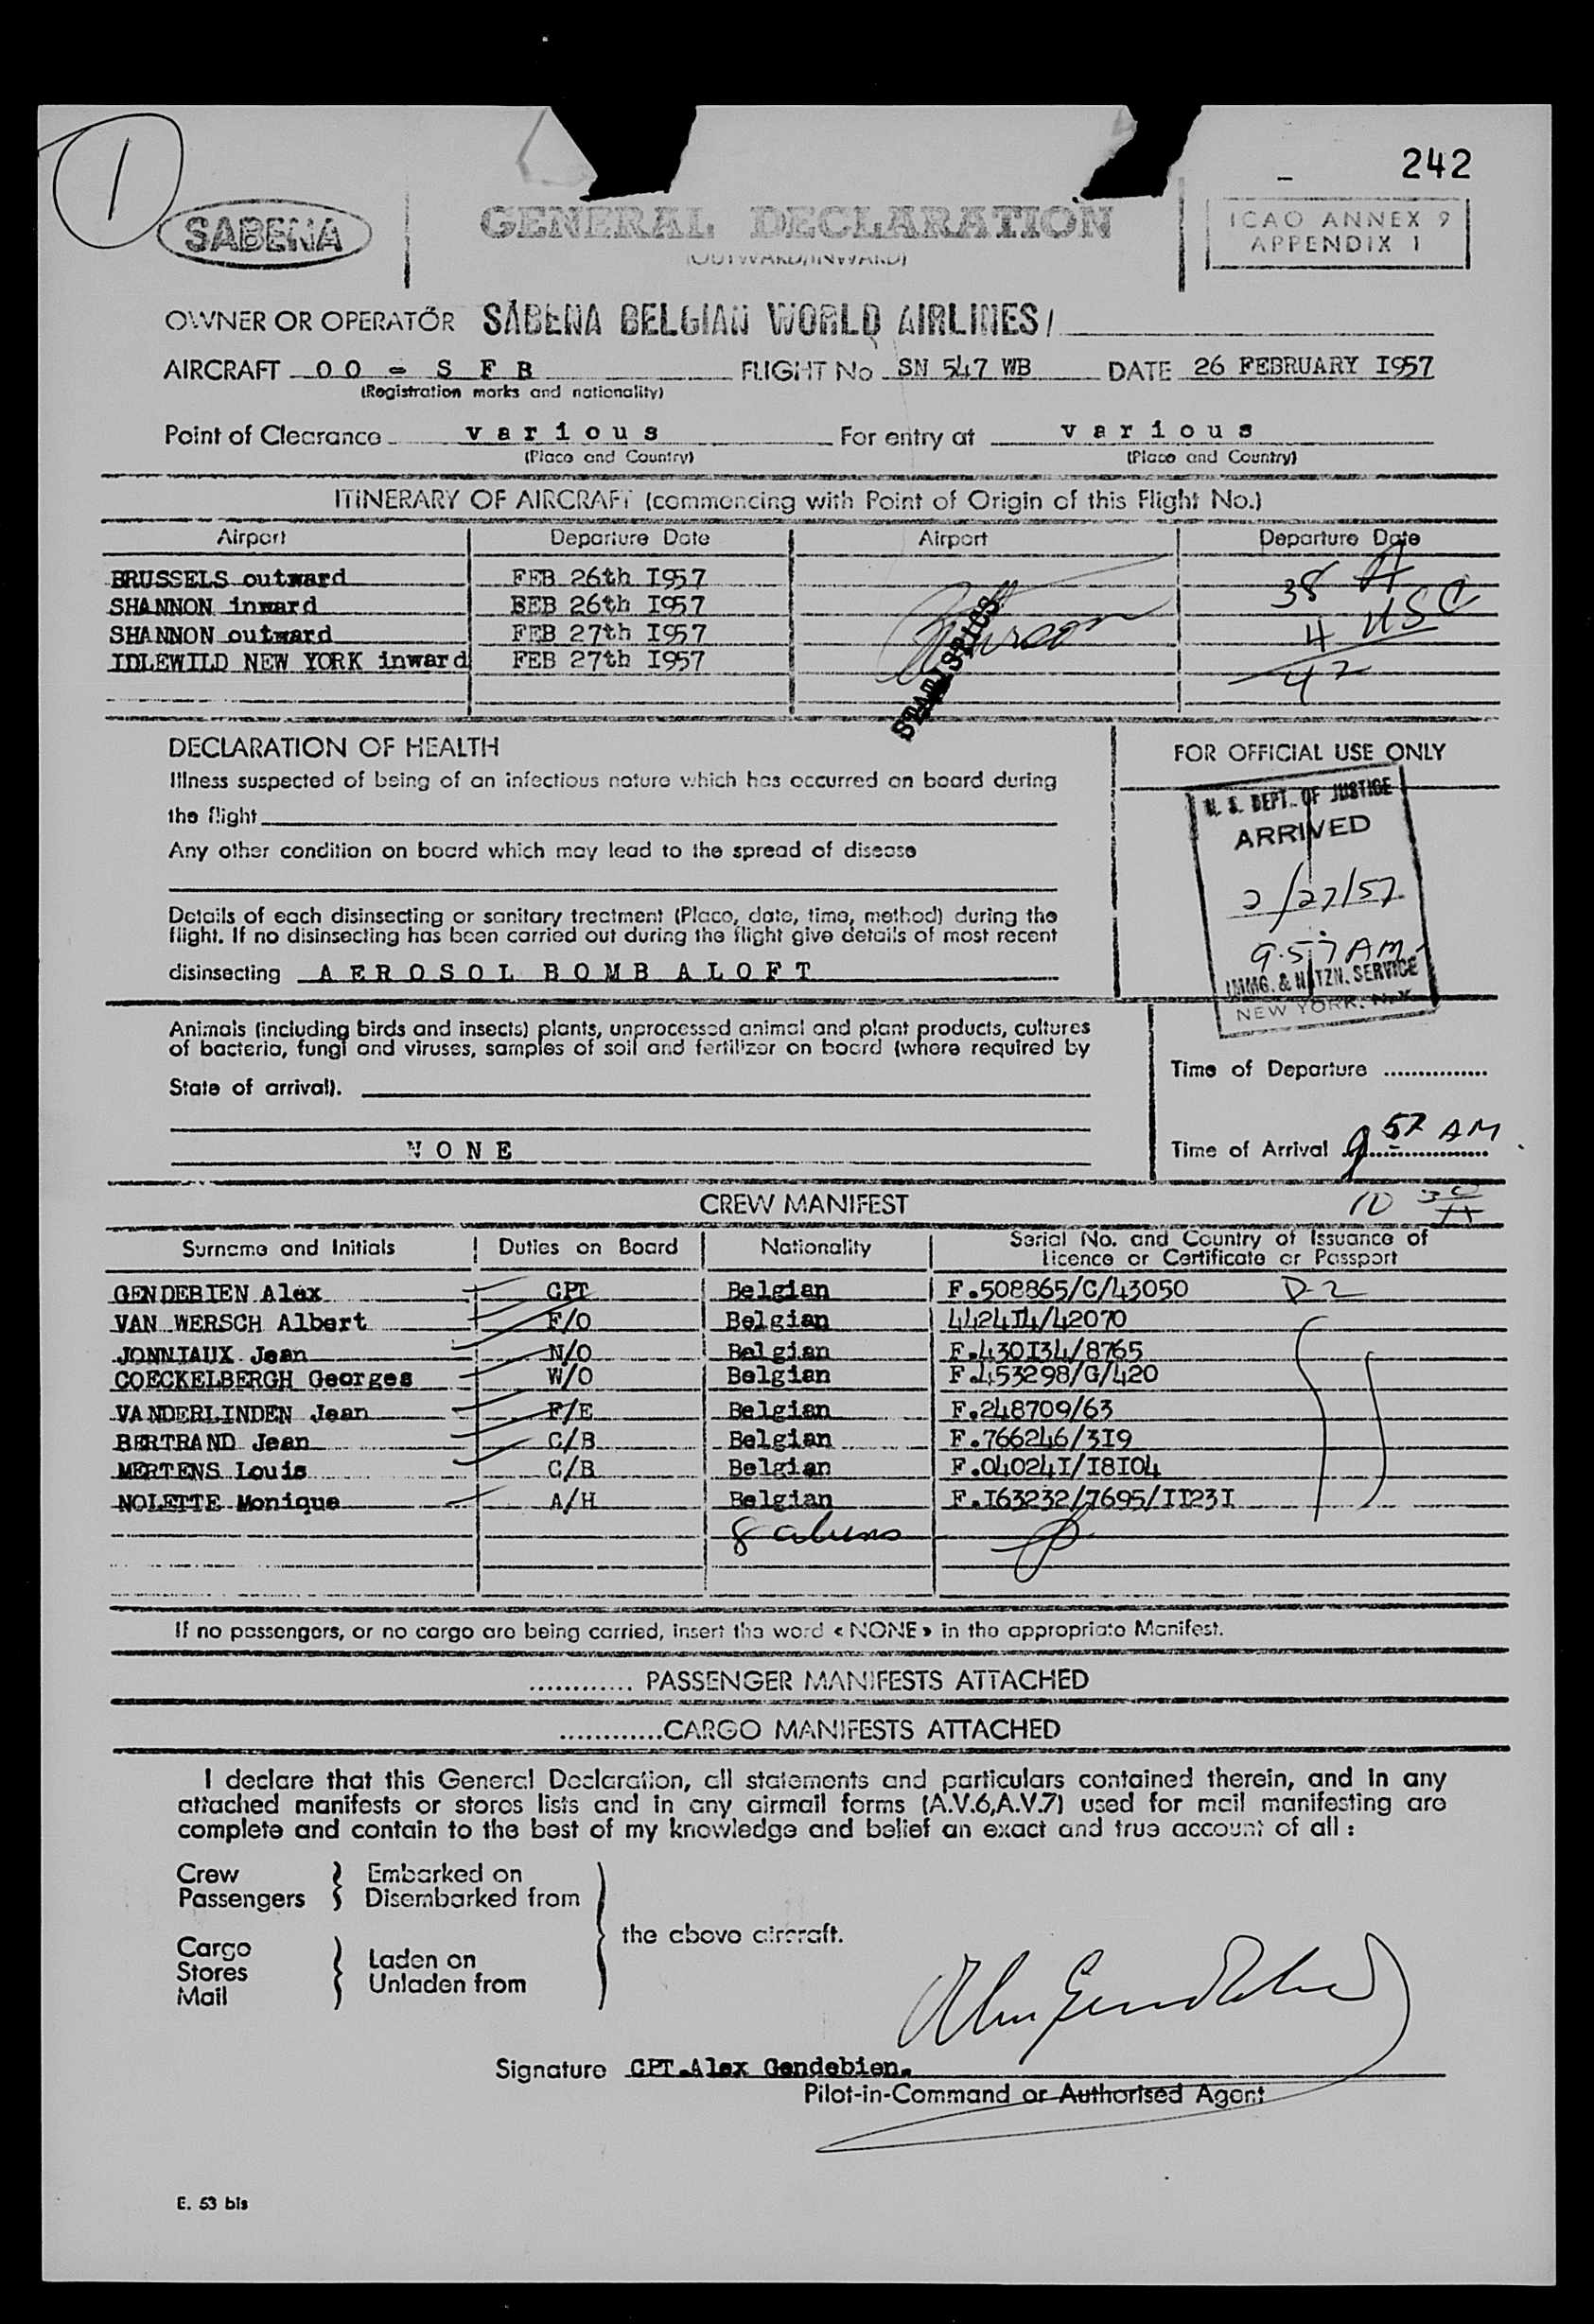 1
242
SABENA
GENERAL DECLARATION
(OUTWARD/INWARD)
ICAO ANNEX 9
APPENDIX 1
OWNER OR OPERATOR SABENA BELGIAN WORLD AIRLINES/
AIRCRAFT OO - S F B FLIGHT No SN 547 WB DATE 26 FEBRUARY I957
(Registration marks and nationality)
Point of Clearance various For entry at various
(Place and Country) (Place and Country)
ITINERARY OF AIRCRAFT (commencing with Point of Origin of this Flight No.)
Airport Departure Date Airport Departure Date
BRUSSELS outward FEB 26th I957 38 A
SHANNON inward FEB 26th I957
SHANNON outward FEB 27th I957 4 USC
IDLEWILD NEW YORK inward FEB 27th I957 42
STATISTICS
DECLARATION OF HEALTH
FOR OFFICIAL USE ONLY
Illness suspected of being of an infectious nature which has occurred on board during
the flight
Any other condition on board which may lead to the spread of disease
U. S. DEPT. OF JUSTICE
ARRIVED
2/27/57
9.57 AM
IMMG. & NATZN. SERVICE
NEW YORK. N.Y.
Details of each disinsecting or sanitary treatment (Place, date, time, method) during the
flight. If no disinsecting has been carried out during the flight give details of most recent
disinsecting AEROSOL BOMB ALOFT
Animals (including birds and insects) plants, unprocessed animal and plant products, cultures
of bacteria, fungi and viruses, samples of soil and fertilizer on board (where required by
State of arrival).
NONE
Time of Departure
Time of Arrival 9 57 AM
CREW MANIFEST
Surname and Initials Duties on Board Nationality Serial No. and Country of Issuance of
Licence or Certificate or Passport
GENDEBIEN Alex CPT Belgian F.508865/C/43050 D-2
VAN WERSCH Albert F/O Belgian 4424I4/42070
JONNIAUX Jean N/O Belgian F.430I34/8765
COECKELBERGH Georges W/O Belgian F.453298/G/420
VANDERLINDEN Jean F/E Belgian F.248709/63
BERTRAND Jean C/B Belgian F.766246/3I9
MERTENS Louis C/B Belgian F.04024I/I8I04
NOLETTE Monique A/H Belgian F.I63232/7695/II23I
8 aliens
If no passengers, or no cargo are being carried, insert the word « NONE » in the appropriate Manifest.
............ PASSENGER MANIFESTS ATTACHED
............CARGO MANIFESTS ATTACHED
I declare that this General Declaration, all statements and particulars contained therein, and in any
attached manifests or stores lists and in any airmail forms (A.V.6,A.V.7) used for mail manifesting are
complete and contain to the best of my knowledge and belief an exact and true account of all :
Crew
Passengers
Embarked on
Disembarked from
the above aircraft.
Cargo
Stores
Mail
Laden on
Unladen from
Alex Gendebien
Signature CPT.Alex Gendebien.
Pilot-in-Command or Authorised Agent
E. 53 bis